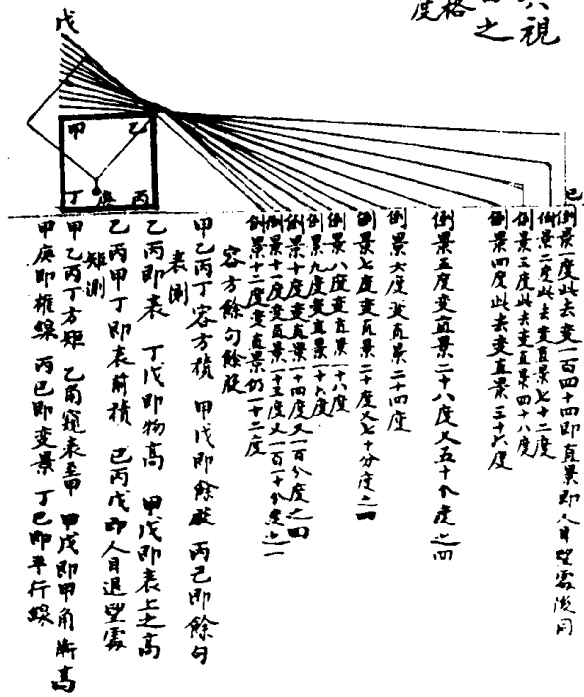 視
之
度格
戊
甲 乙
丁 庚 丙
己
倒景一度此去變一百四十四即直景即人目望處後同
倒景二度此去變直景七十二度
倒景三度此去變直景四十八度
倒景四度此去變直景三十六度
倒景五度變直景二十八度又五十分度之四
倒景六度變直景二十四度
倒景七度變直景二十度又七十分度之四
倒景八度變直景一十八度
倒景九度變直景一十六度
倒景十度變直景一十四度又一百分度之四
倒景十度變直景一十三度又一百一十分度之一
倒景十二度變直景仍一十二度
容方餘句餘股
甲乙丙丁容方積 甲戊即餘股 丙己即餘句
表測
乙丙即表 丁戊即物高 甲戊即表上之高
乙丙甲丁即表前積 己丙戊即人目退望處
矩測
甲乙丙丁方矩 乙角窺表至甲 甲戊即甲角斯高
甲庚即權線 丙己即變景 丁己即平行線